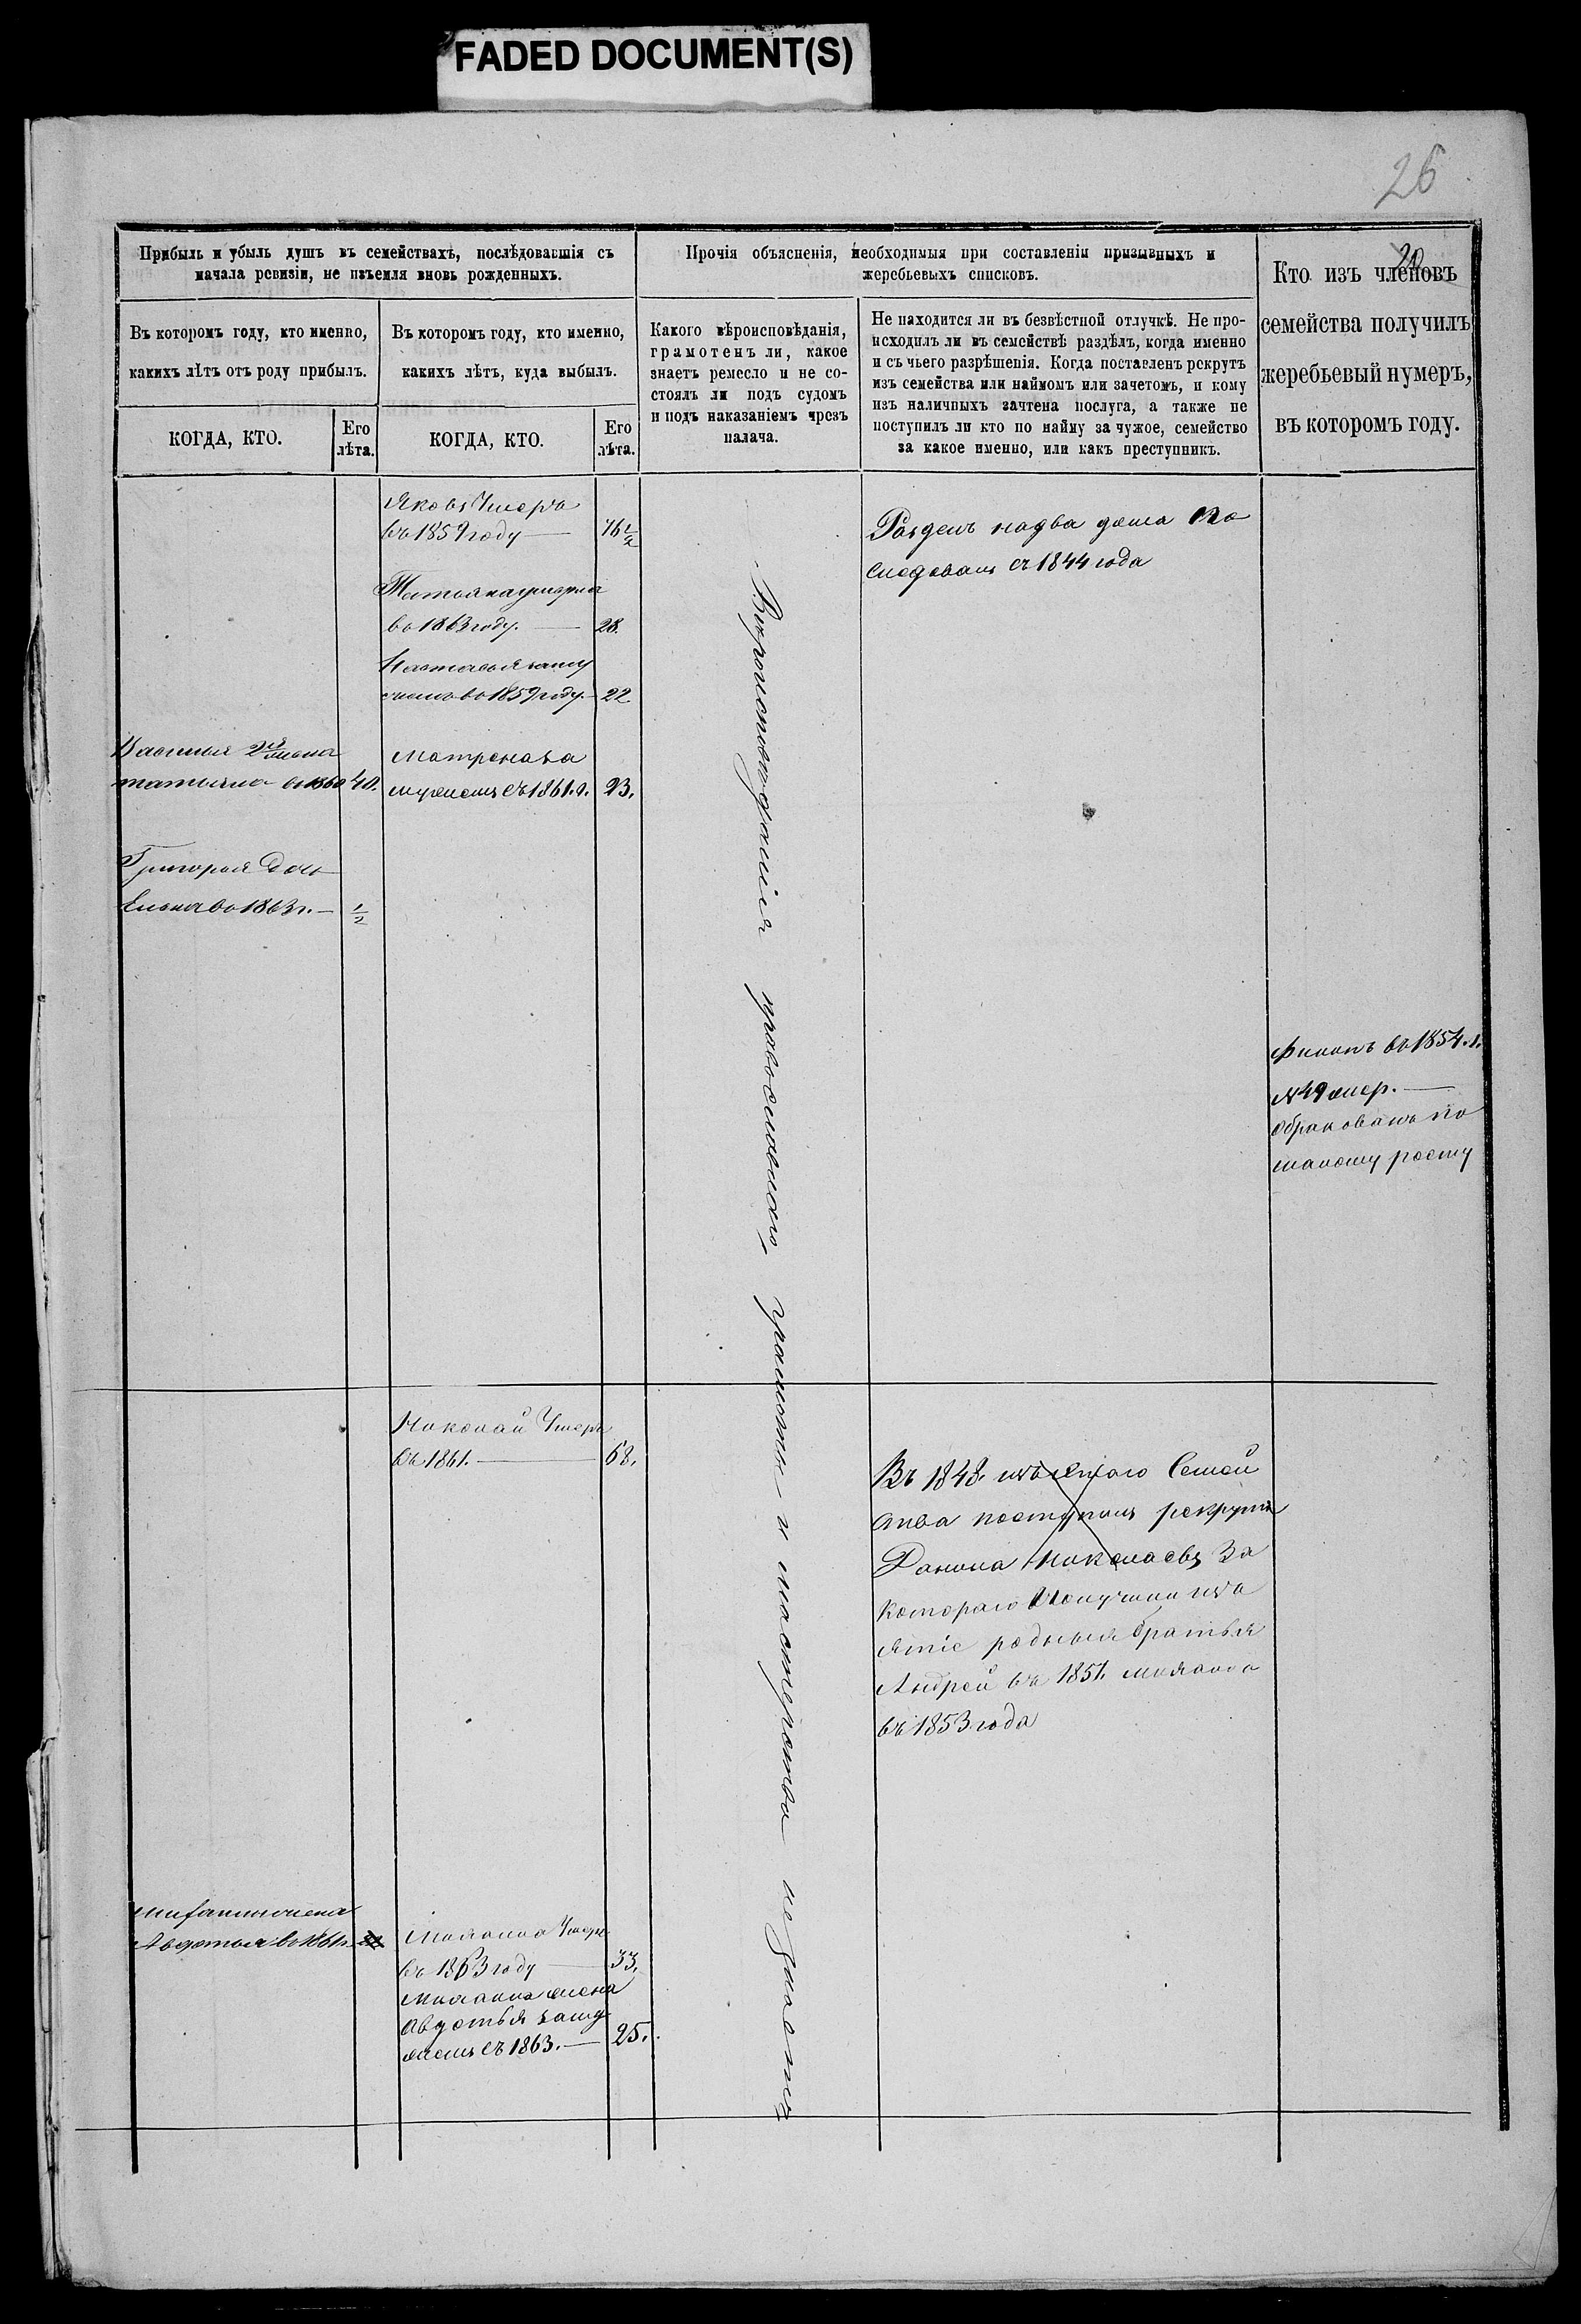 FADED DOCUMENT(S)
26
20
Прибыль и убыль душъ въ семействахъ, послѣдовавшія съ
начала ревизіи, не изъемля вновь рожденныхъ.
Въ которомъ году, кто именно,
какихъ лѣтъ отъ роду прибылъ.
КОГДА, КТО.
Его
лѣта.
Въ которомъ году, кто именно,
какихъ лѣтъ, куда выбылъ.
КОГДА, КТО.
Его
лѣта.
Прочія объясненія, необходимыя при составленіи призывныхъ и
жеребьевыхъ списковъ.
Какого вѣроисповѣданія,
грамотенъ ли, какое
знаетъ ремесло и не со-
стоялъ ли подъ судомъ
и подъ наказаніемъ чрезъ
палача.
Не находится ли въ безвѣстной отлучкѣ. Не про-
исходилъ ли въ семействѣ раздѣлъ, когда именно
и съ чьего разрѣшенія. Когда поставленъ рекрутъ
изъ семейства или наймомъ или зачетомъ, и кому
изъ наличныхъ зачтена послуга, а также не
поступилъ ли кто по найму за чужое, семейство
за какое именно, или какъ преступникъ.
Кто изъ членовъ
семейства получилъ
жеребьевый нумеръ,
въ которомъ году.
Яковъ Умеръ
въ 1859 году 76 1/2
Татьяна умерла
въ 1863 году. 28.
Настасья заму
жемъ въ 1859 году. 22
Василья 2я жена
татьяна въ 1860 40.
Матрена за
мужемъ съ 1861. г. 23.
Григорья дочь
въ 1863 г. 1/2
Вѣроисповѣданія православнаго, грамоты и мастерства не знаютъ
Раздѣлъ на два дома по
следовалъ съ 1844 года
въ 1854. г.
№ 49 жер.
обракованъ по
малому росту
Николай Умеръ
въ 1861. 68.
Въ 1848. изъ сего Семей
ства поступилъ рекрутъ
Данила Николаевъ За
котораго получили изъ
ятіе родныя братья
Андрей въ 1851.
въ 1853 года
жена
Авдотья въ 1861 г.
Умеръ
въ 1863 году 33.
жена
Авдотья заму
жемъ съ 1863. 25.